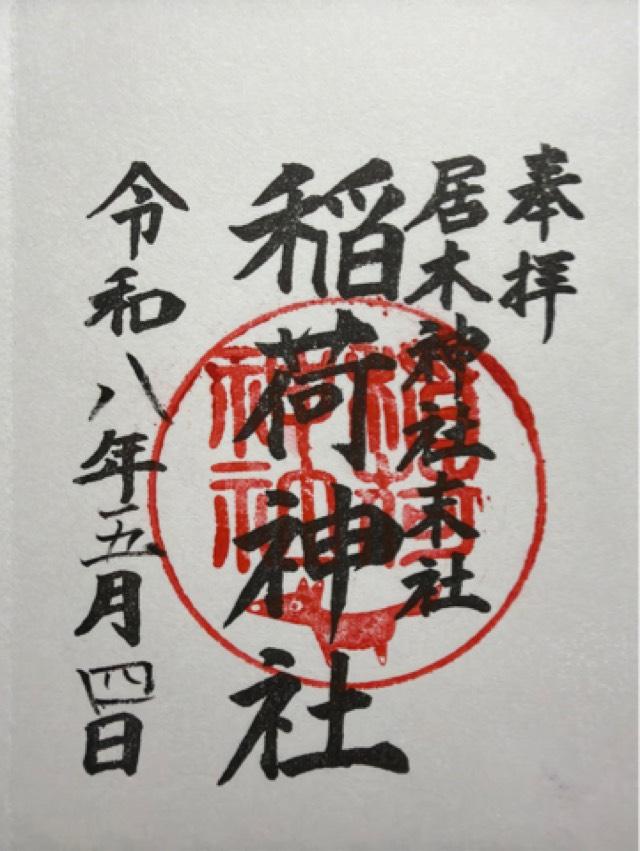 奉拝
居木神社末社
稲荷神社
令和八年五月四日